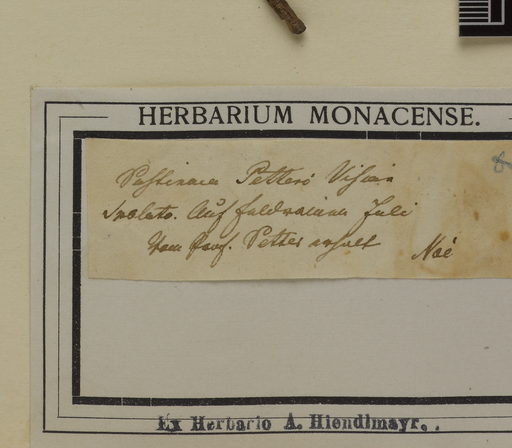 HERBARIUM MONACENSE.
Pastinaca Petteri Visiani
Spalato. Auf Feldrainen Juli
Vom Prof. Petter erhalt Noë
Ex Herbario A. Hiendlmayr.